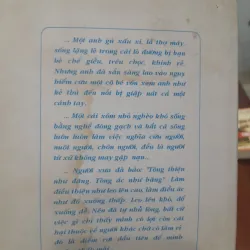 ... Một anh gù xấu xí, lỡ thợ máy,
sống lặng lẽ trong cát lò đường bị bạn
bè chế giễu, trêu chọc, khinh rẻ.
Nhưng anh đã sẵn sàng lao vào nguy
hiểm cứu một cô bé con xem anh như
kẻ thù đến nỗi bị giập nát cả một
cánh tay.
... Một cái xóm nhà nghèo khó sống
bằng nghề đóng gạch và bất cả sống
luôn luôn làm việc nghĩa cứu người,
nuôi người, chôn người, đều là người
tứ xứ không may gặp nạn...
... Người xưa đã bảo: "Tòng thiện
như đăng. Tòng ác như băng" Làm
điều thiện như leo lên cao, làm điều ác
như đổ xuống thấp. Leo lên khó, đổ
xuống dễ. Nếu đã tự nhủ lòng, bất cứ
việc gì chỉ thấy mình có lợi còn cái
hại thuộc về người khác chớ có làm vì
đó là điểm rơi đầu tiên để mình